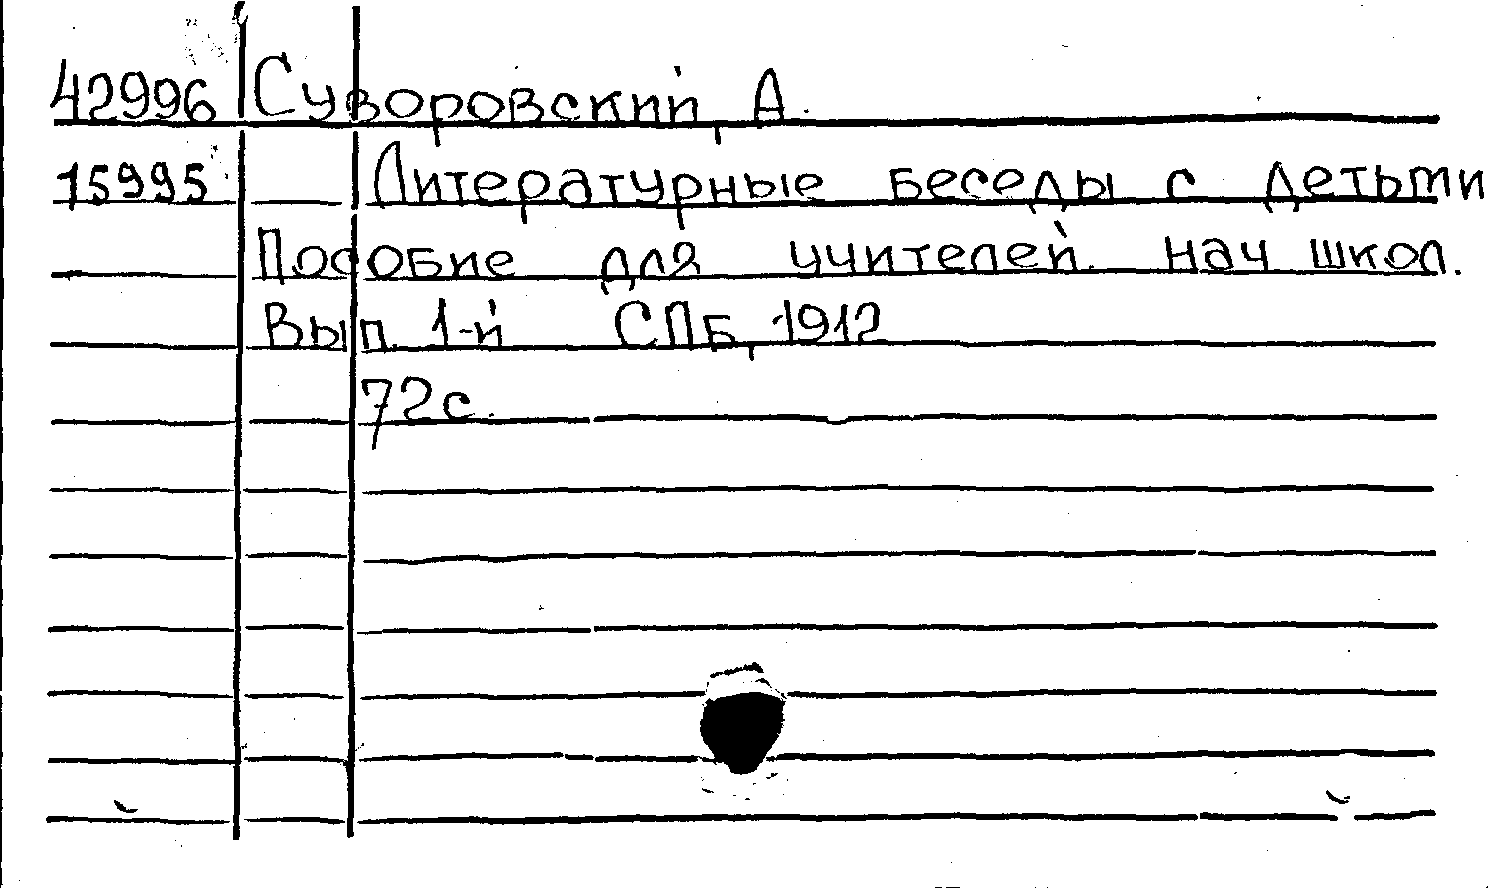 42996 Суворовский, А.
15995 Литературные беседы с детьми
Пособие для учителей. нач школ.
Вып. 1-й СПБ, 1912
72с.